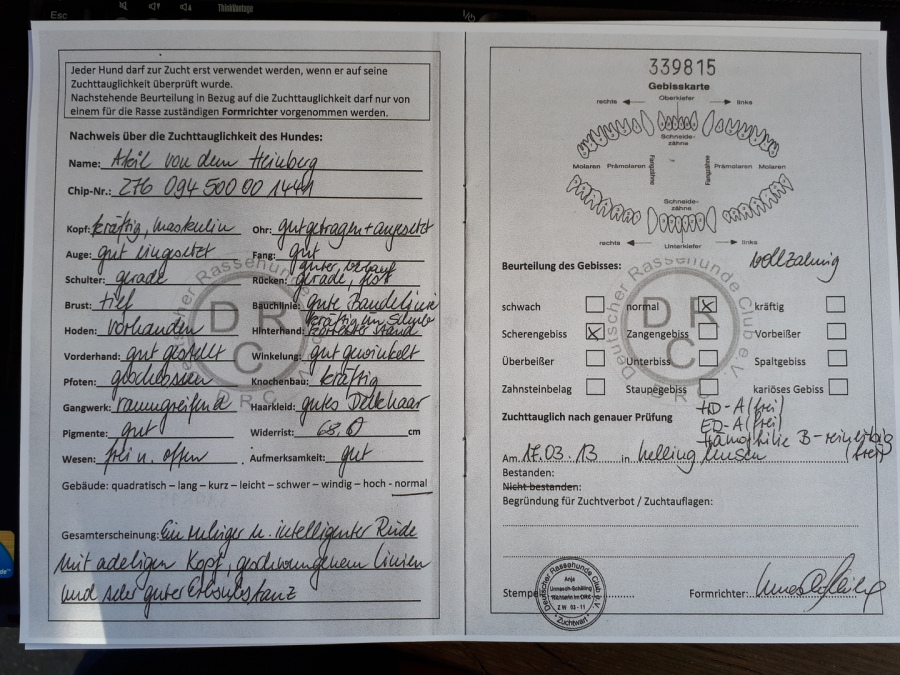 Esc
ThinkVantage
Jeder Hund darf zur Zucht erst verwendet werden, wenn er auf seine
Zuchttauglichkeit überprüft wurde.
Nachstehende Beurteilung in Bezug auf die Zuchttauglichkeit darf nur von
einem für die Rasse zuständigen Formrichter vorgenommen werden.
Nachweis über die Zuchttauglichkeit des Hundes:
Name: von dem Heinberg
Chip-Nr.: 276 094 500 00 1441
Kopf: kräftig, maskulin Ohr: gut getragen + angesetzt
Auge: gut eingesetzt Fang: gut
Schulter: gerade Rücken: guter Verlauf gerade, fest
Brust: tief Bauchlinie: gute Bauchlinie
Hoden: vorhanden Hinterhand: kräftig im
Vorderhand: gut gestellt Winkelung: gut gewinkelt
Pfoten: geschlossen Knochenbau: kräftig
Gangwerk: raumgreifend Haarkleid: gutes Deckhaar
Pigmente: gut Widerrist: 68,0 cm
Wesen: frei u. offen Aufmerksamkeit: gut
Gebäude: quadratisch – lang – kurz – leicht – schwer – windig – hoch - normal
Gesamterscheinung: Ein ruhiger u. intelligenter Rüde
mit adeligen Kopf, geschwungenem Linien
und sehr guter
Deutscher Rassehunde Club e.V.
DRC
339815
Gebisskarte
rechts Oberkiefer links
Schneide-
zähne
Molaren Prämolaren Fangzähne Fangzähne Prämolaren Molaren
Schneide-
zähne
rechts Unterkiefer links
Beurteilung des Gebisses: vollzahnig
schwach normal kräftig
Scherengebiss Zangengebiss Vorbeißer
Überbeißer Unterbiss Spaltgebiss
Zahnsteinbelag Staupegebiss kariöses Gebiss
Deutscher Rassehunde Club e.V.
DRC
Zuchttauglich nach genauer Prüfung
HD-A (frei)
ED-A (frei)
Hämophilie B-reinerbig (frei)
Am 17.03.13 in
Bestanden:
Nicht bestanden:
Begründung für Zuchtverbot / Zuchtauflagen:
Stempel
Deutscher Rassehunde Club e.V.
Anja
Unnasch-Schilling
Richterin im DRC
Z W 03 - 11
"Zuchtwart"
Formrichter: